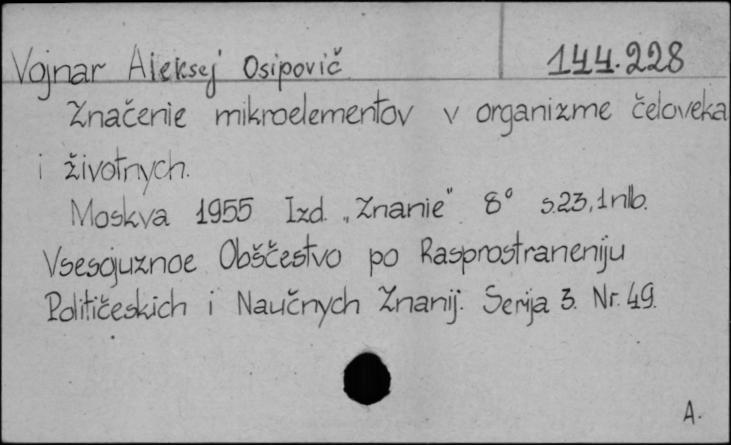 Vojnar Aleksej Osipovič 144.228
Značenie mikroelementov v organizme čeloveka
i životnych.
Moskva 1955 Izd. „Znanie" 8° s.23, 1 nlb.
Vsesojuznoe Obščestvo po Rasprostraneniju
Političeskich i Naučnych Znanij. Serija 3. Nr. 49.
A.